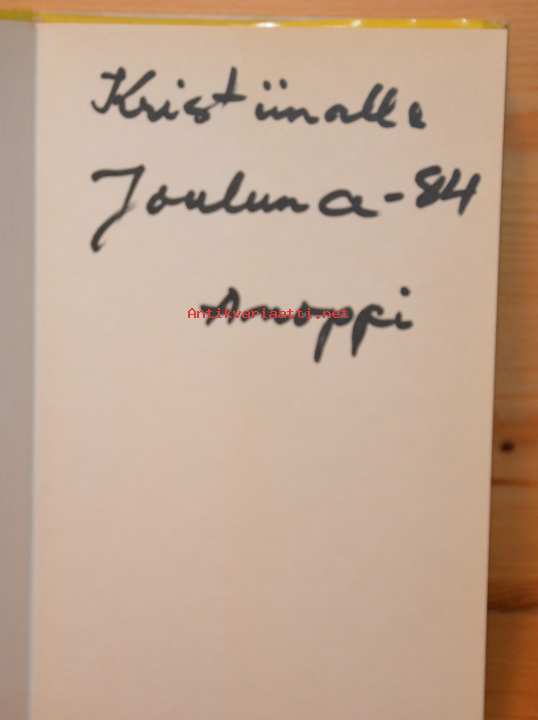 Kristiinalle
Jouluna -84
Anoppi
Antikvariaatti.net